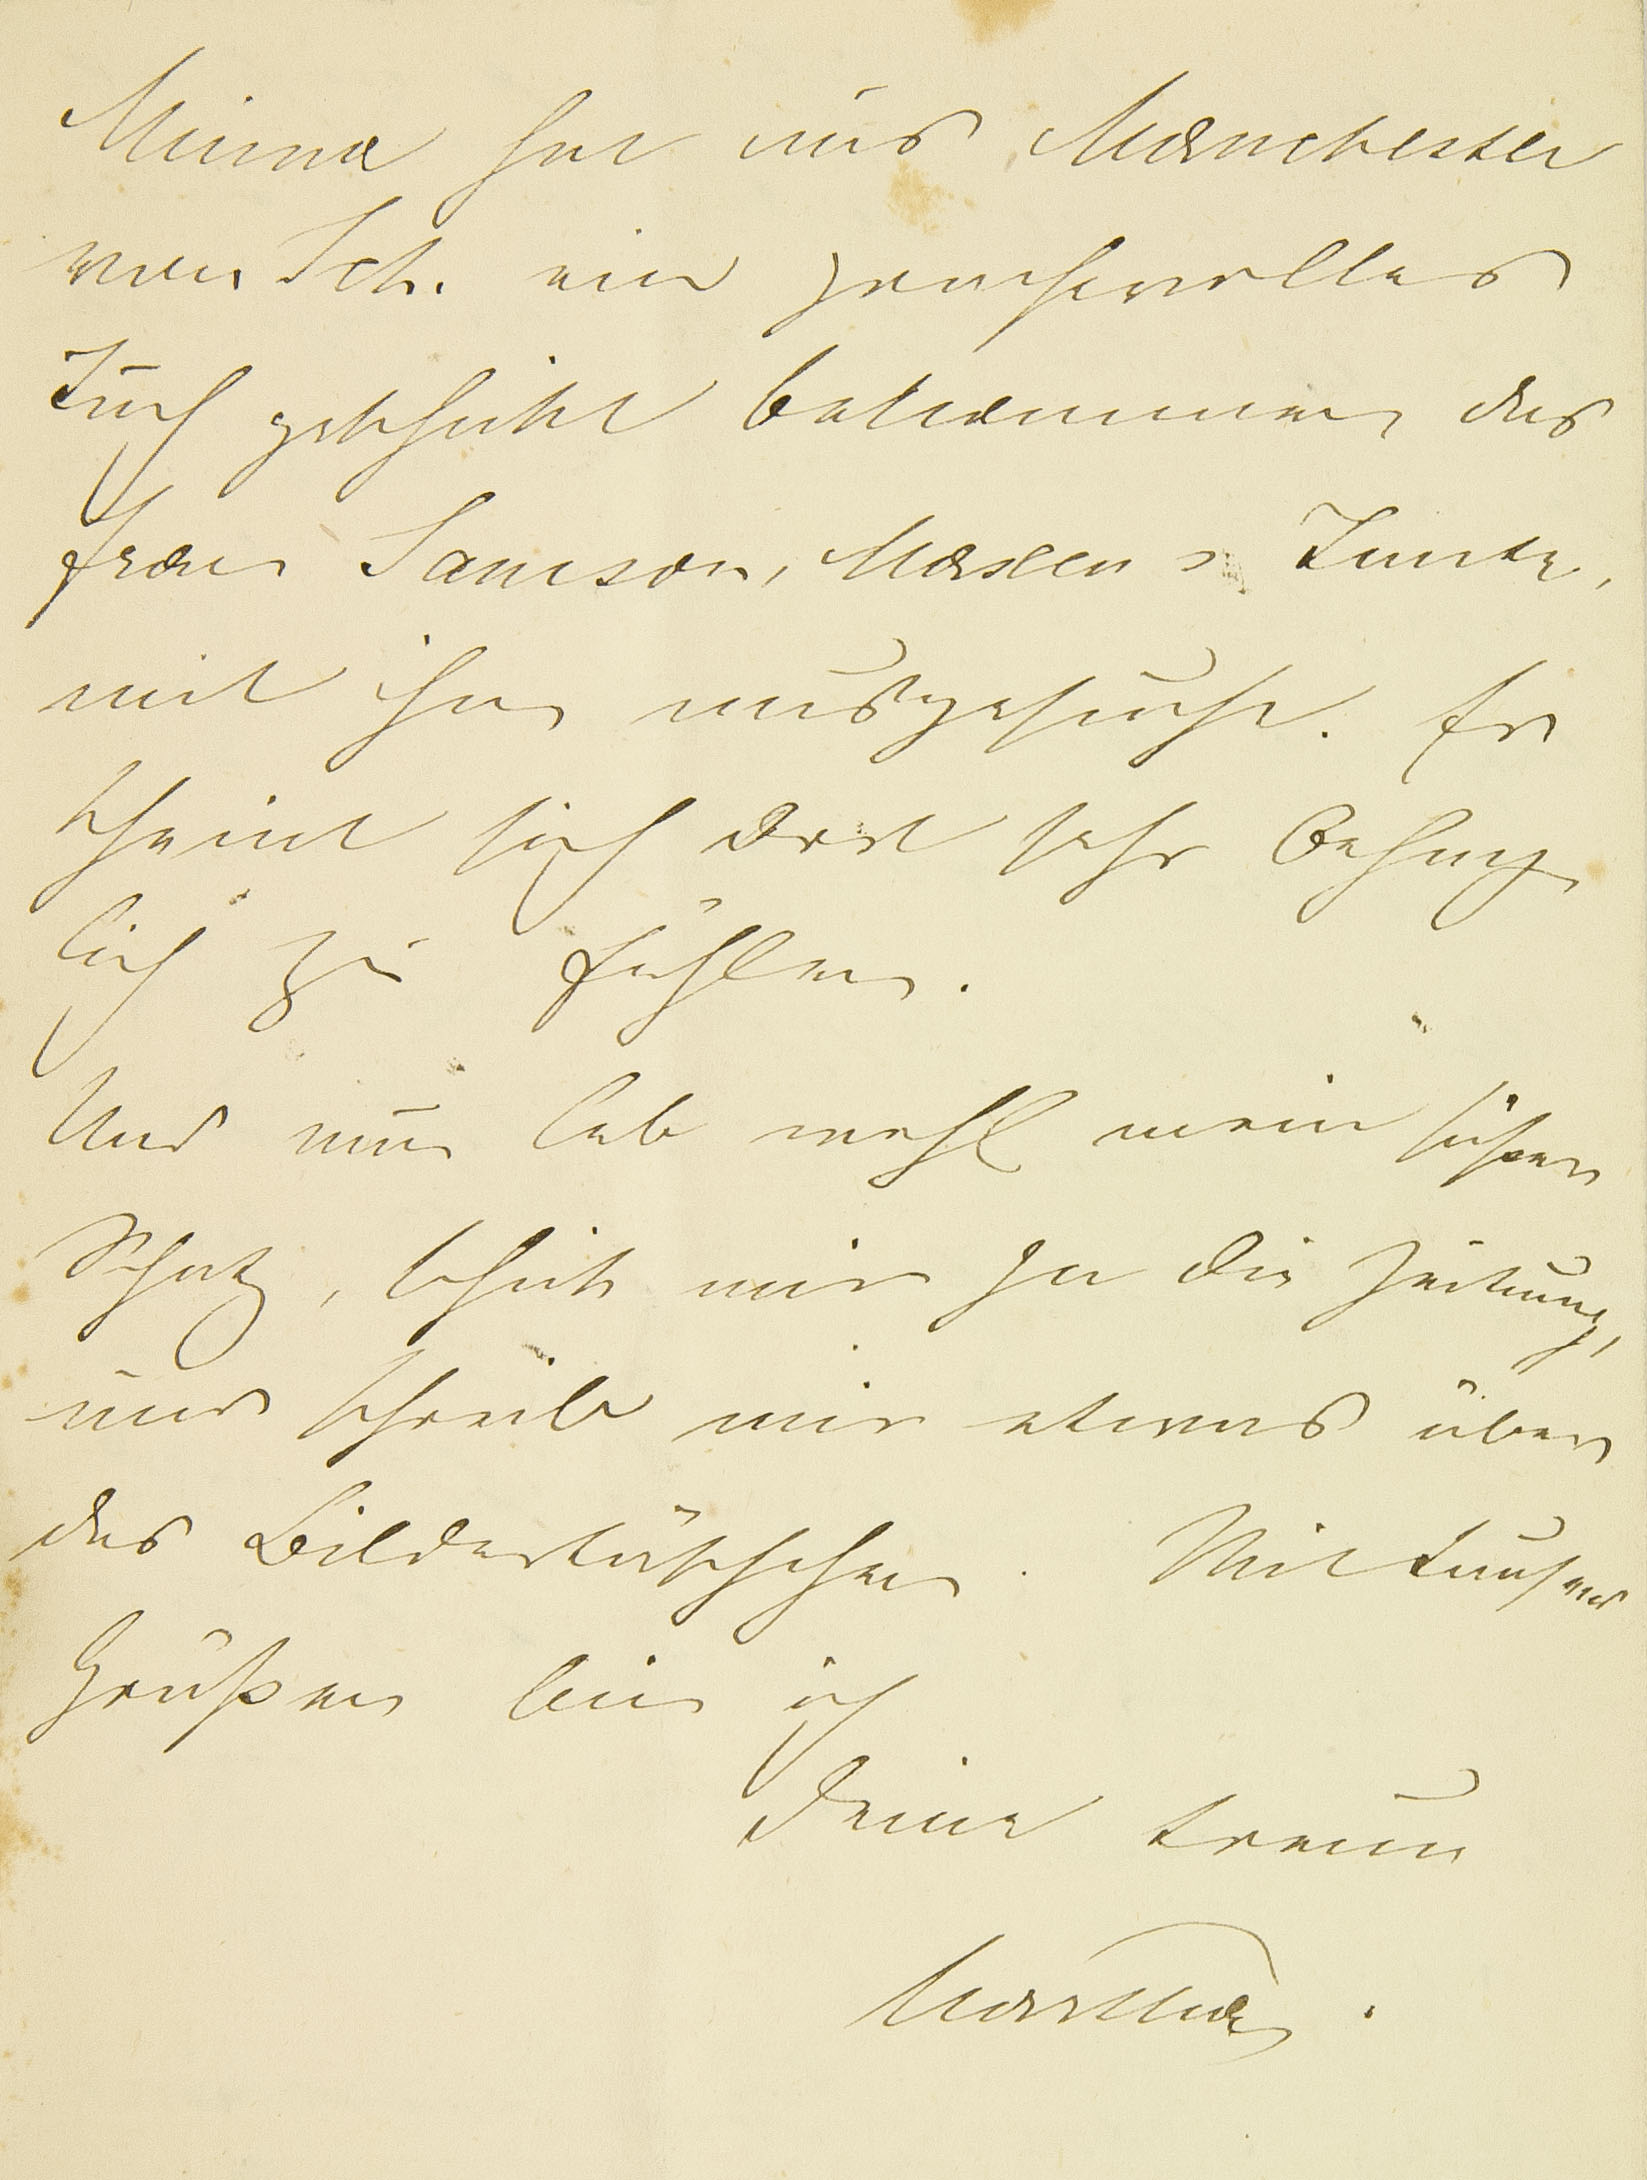 Minna hat aus Manchester
von Sch. ein prachtvolles
Tuch geschickt bekommen das
Frau Samson, Maxens Tante,
mit ihm ausgesucht. Er
scheint sich dort sehr behag
lich zu fühlen.
Und nun leb wohl mein süßer
Schatz, schick mir ja die Zeitung,
und schreib mir etwas über
das Bildertäschchen. Mit tausend
Grüßen bin ich
Deine treue
Martha.